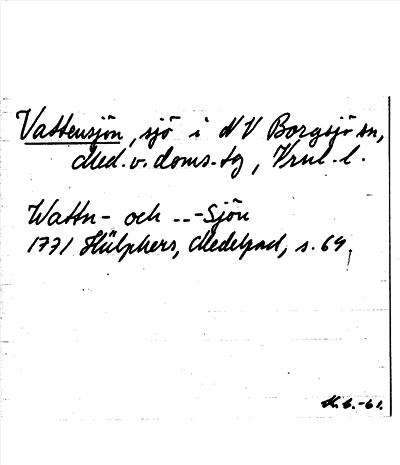 Vattensjön, sjö i NV Borgsjö sn,
Med. v. doms.tg, Vnl. l.
Wattn- och --- Sjön
1771 Hülphers, Medelpad, s. 69,